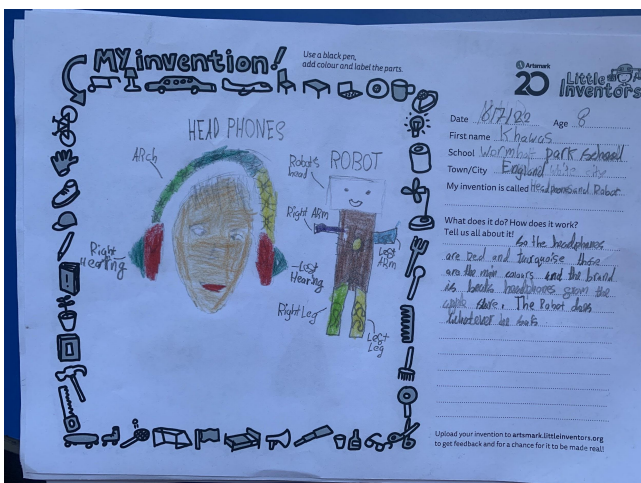 My invention!
Use a black pen,
add colour and label the parts.
Artsmark
20
Little
Inventors
HEAD PHONES
ARch
Right
Hearing
Left
Hearing
ROBOT
Robot's
head
Right Arm
Left
Arm
Right Leg
Left
Leg
Date 18/7/22 Age 8
First name Khawas
School park school
Town/City England
My invention is called Headphones and Robot
What does it do? How does it work?
Tell us all about it!
So the headphones
are Red and turquoise those
are the main colours and the brand
is beats headphones from the
apple store. The Robot does
whatever he
Upload your invention to artsmark.littleinventors.org
to get feedback and for a chance for it to be made real!